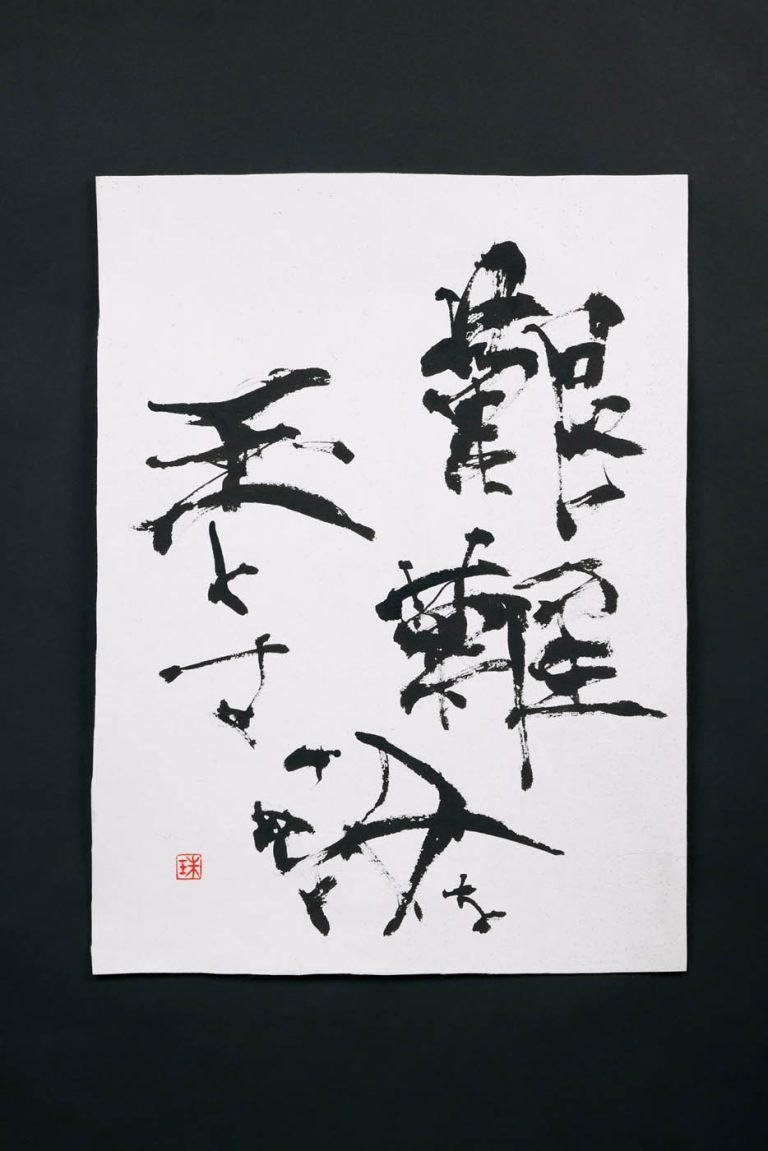 艱難
汝を
玉とす
珠